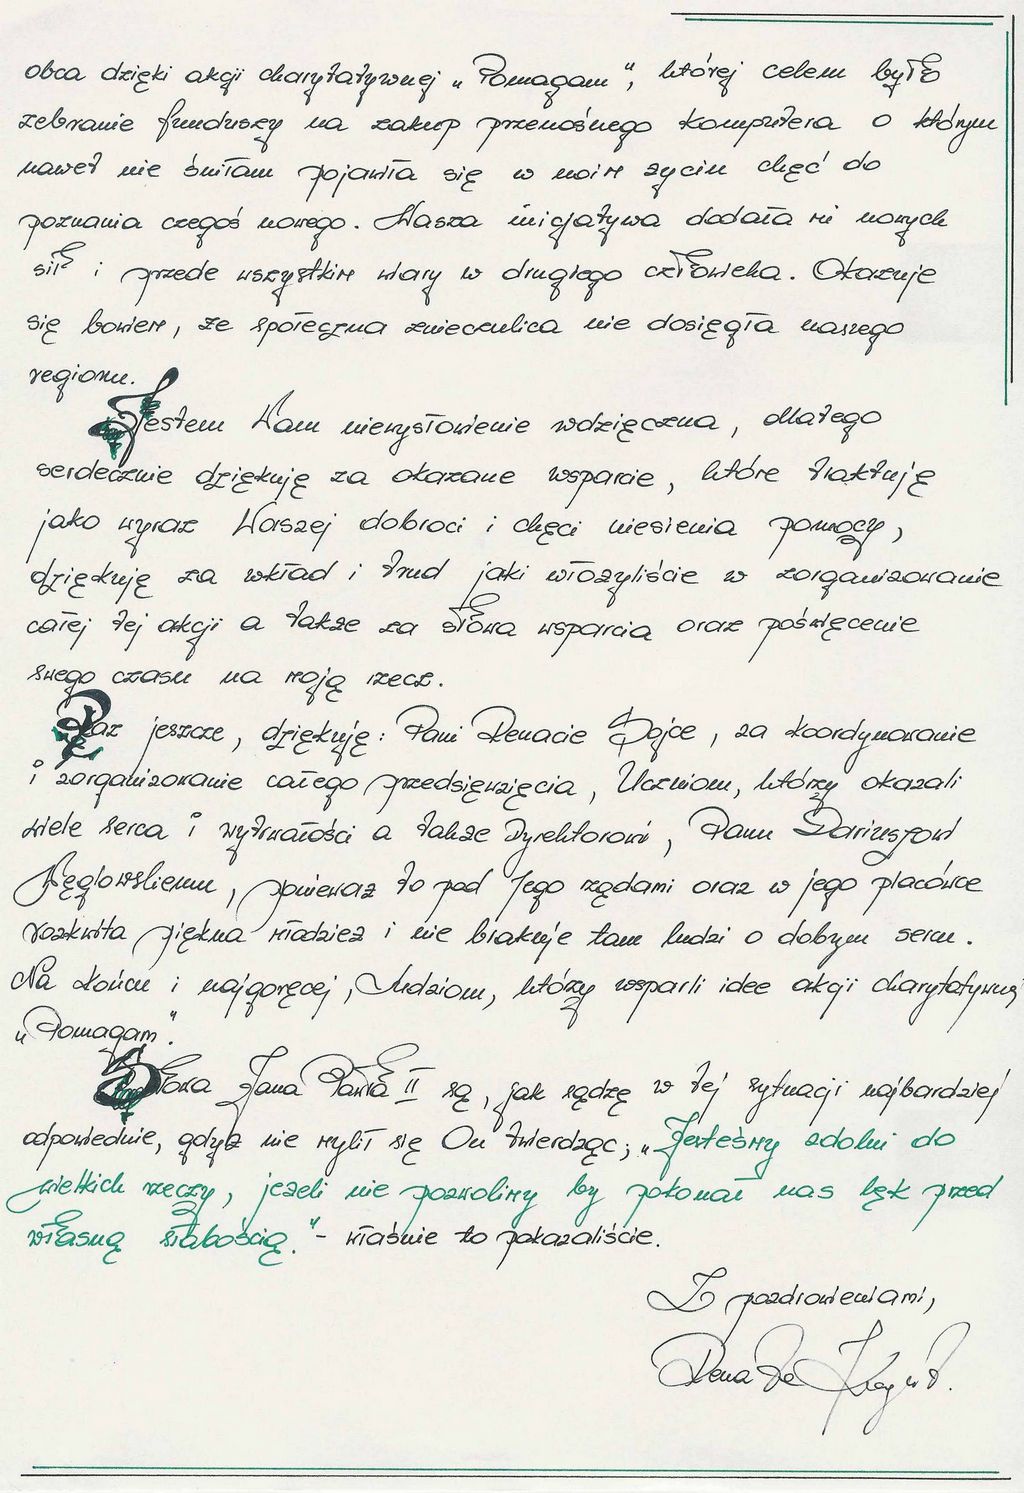 obca dzięki akcji charytatywnej „Pomagam”, której celem było
zebranie funduszy na zakup przenośnego komputera o którym
nawet nie śniłam pojawiła się w moim życiu chęć do
poznania czegoś nowego. Wasza inicjatywa dodała mi nowych
sił i przede wszystkim wiary w drugiego człowieka. Okazuje
się bowiem, że społeczna znieczulica nie dosięgła naszego
regionu.
Jestem Wam niewysłowienie wdzięczna, dlatego
serdecznie dziękuję za okazane wsparcie, które traktuję
jako wyraz Waszej dobroci i chęci niesienia pomocy,
dziękuję za wkład i trud jaki włożyliście w zorganizowanie
całej tej akcji a także za słowa wsparcia oraz poświęcenie
swego czasu na moją rzecz.
Raz jeszcze, dziękuję: Pani Renacie Sojce, za koordynowanie
i zorganizowanie całego przedsięwzięcia, Uczniom, którzy okazali
wiele serca i wytrwałości a także Dyrektorowi, Panu Dariuszowi
ponieważ to pod Jego rządami oraz w jego placówce
rozkwita piękna młodzież i nie brakuje tam ludzi o dobrym sercu.
Na końcu i najgoręcej, Ludziom, którzy wsparli idee akcji charytatywnej
„Pomagam”.
Słowa Jana Pawła II są, jak sądzę w tej sytuacji najbardziej
odpowiednie, gdyż nie mylił się On twierdząc; „Jesteśmy zdolni do
wielkich rzeczy, jeżeli nie pozwolimy by pokonał nas lęk przed
własną słabością.” - właśnie to pokazaliście.
Z pozdrowieniami,
Renata